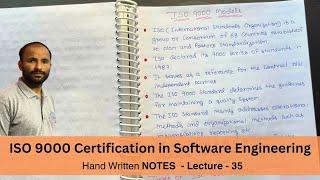 ISO 9000 Models
ISO (International Standards Organization) is a
group or Consortium of 63 Countries established
to plan and fosters standardization.
ISO declared its 9000 series of standards in
1987.
It serves as a reference for the Contract b/w
independent
The ISO 9000 Standard determines the guidelines
for maintaining a quality system.
The ISO Standard mainly addresses operational
methods and organizational methods such as
responsibilities, reporting etc.
ISO 9000 Certification in Software Engineering
Hand Written NOTES - Lecture - 35